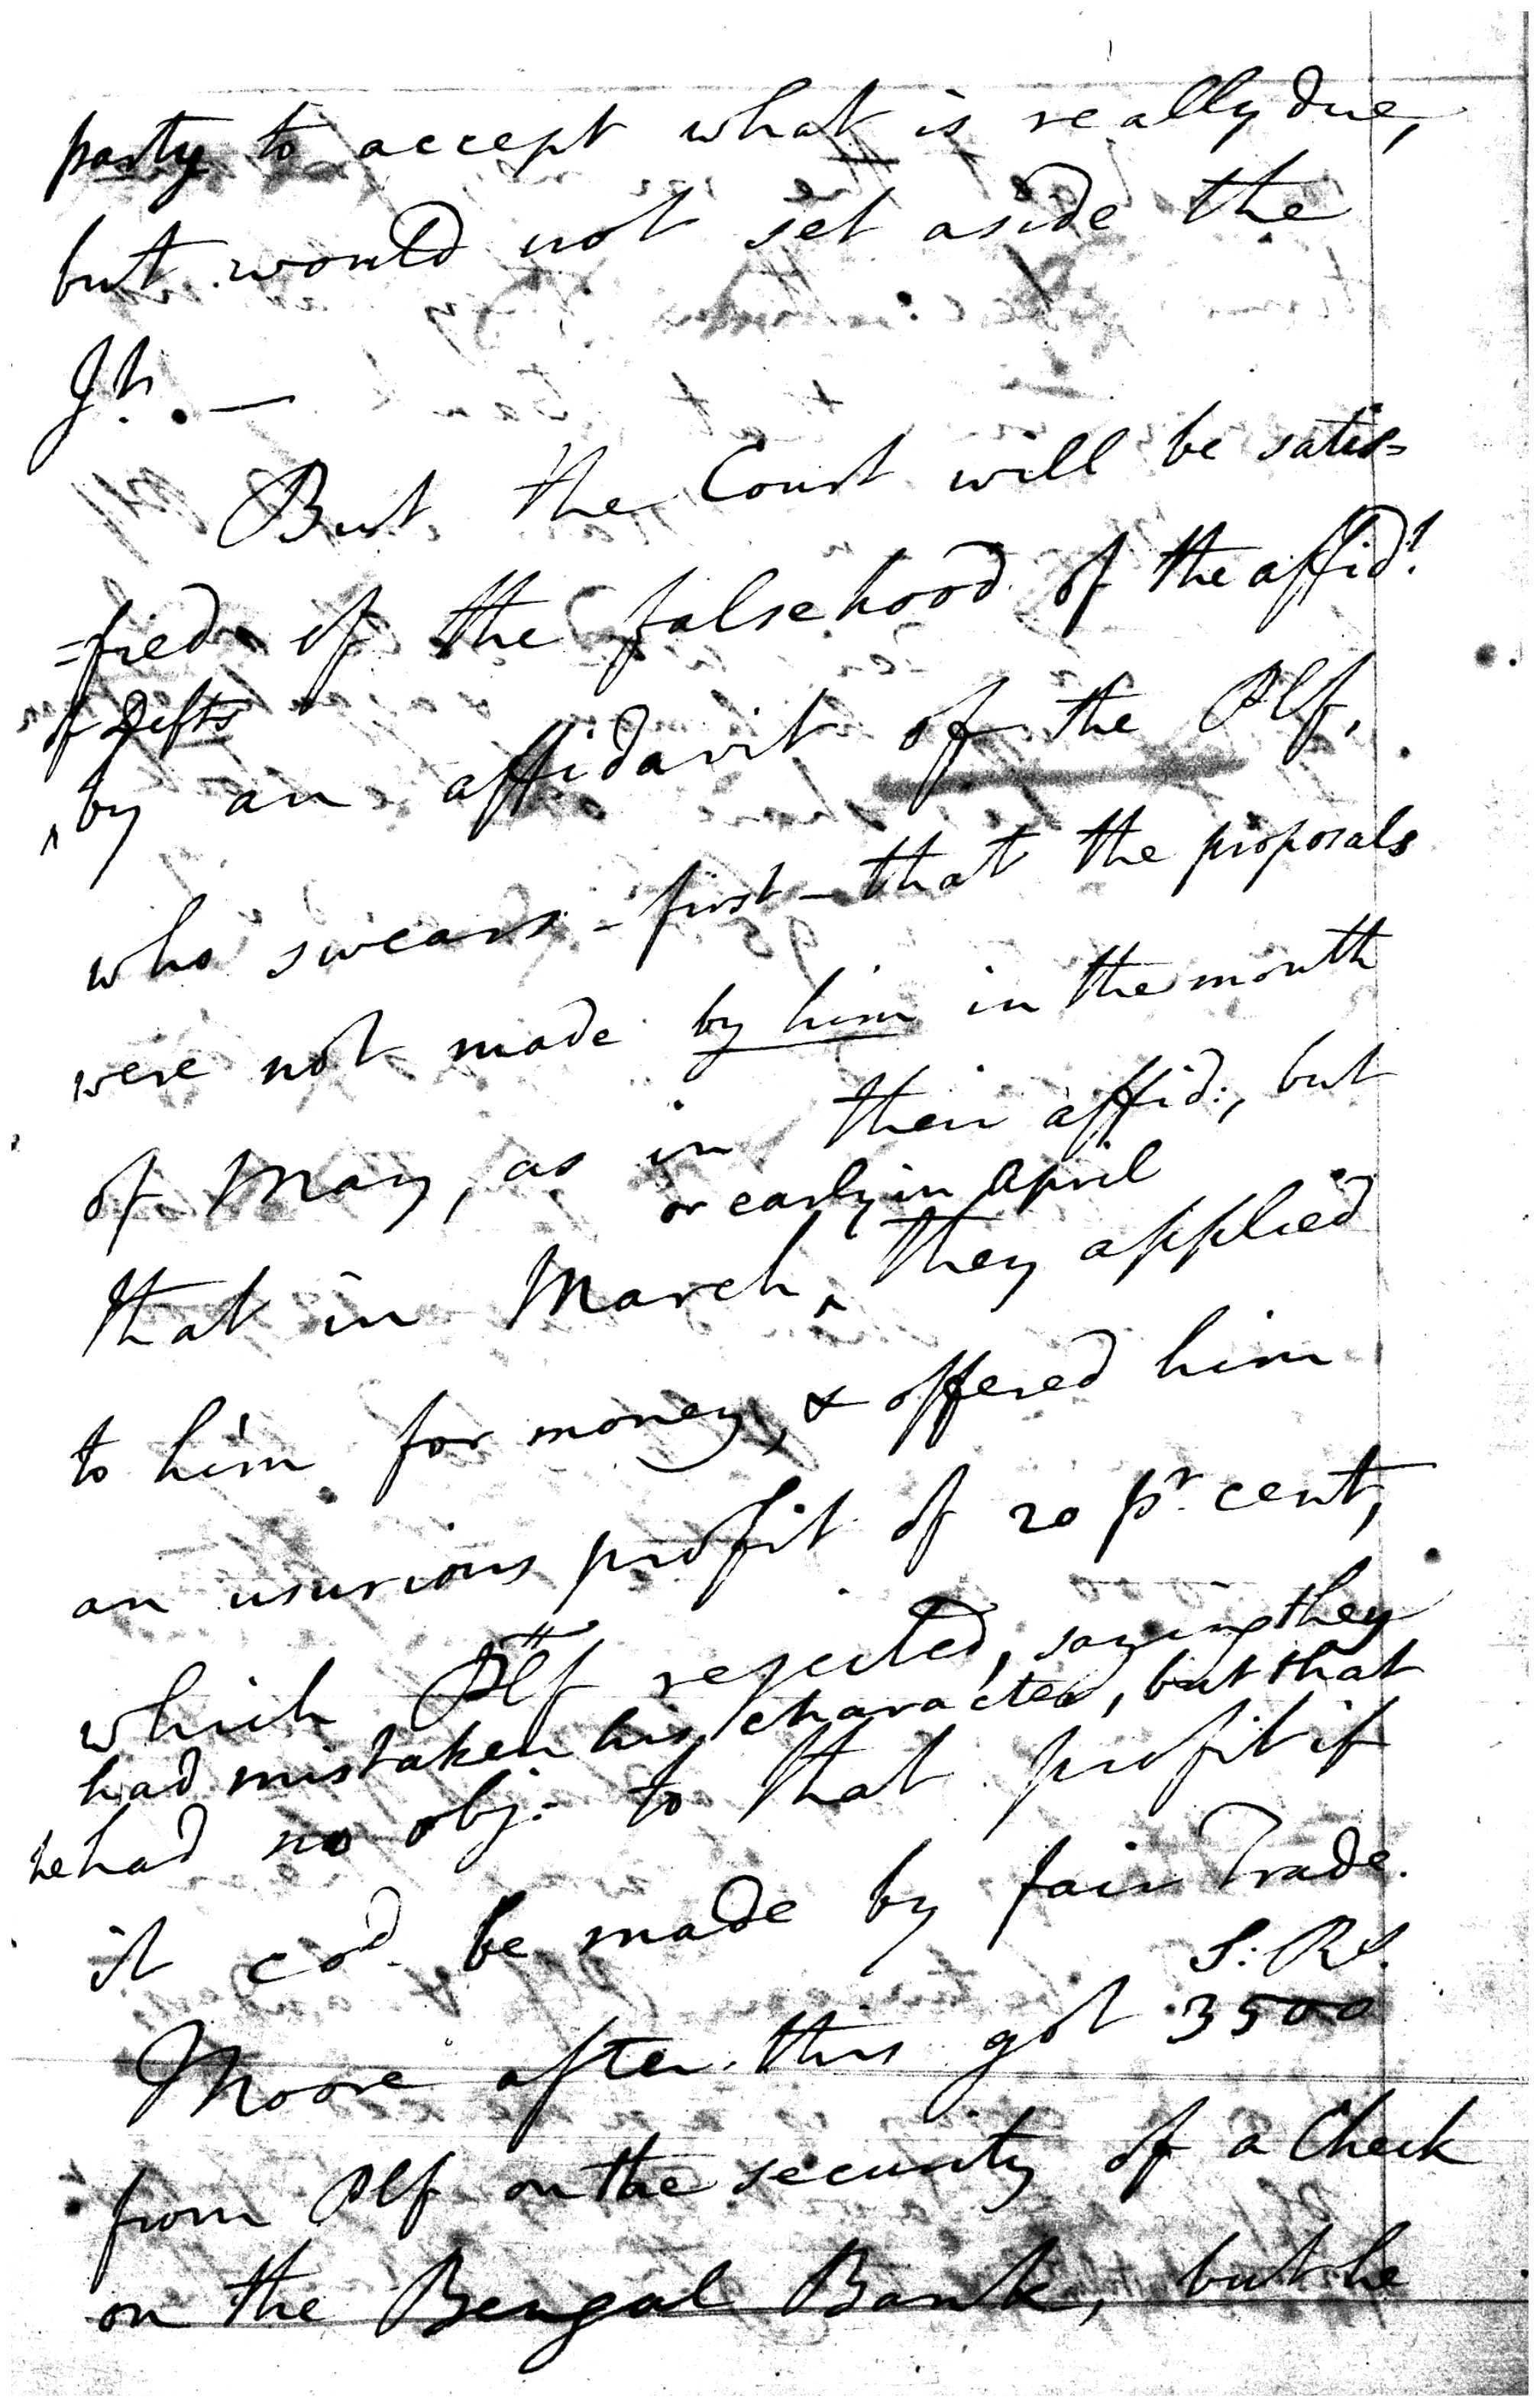 party to accept what is really due,
but would not set aside the
Jt. —
But the Court will be satis=
=fied of the falsehood of the affidt.
of Defts
^by an affidavit of the Plf,
who swears - first - that the proposals
were not made by him in the month
of May, as in their affid:, but
or early in April
that in March^ they applied
to him for money, & offered him
an usurious profit of 20 pr. cent,
which Plf rejected, saying they
had mistaken his character, but that
he had no obj: to that profit if
it cod. be made by fair Trade.
S. Rs.
Moore after this got 3500
from Plf on the security of a Check
on the Bengal Bank, but he